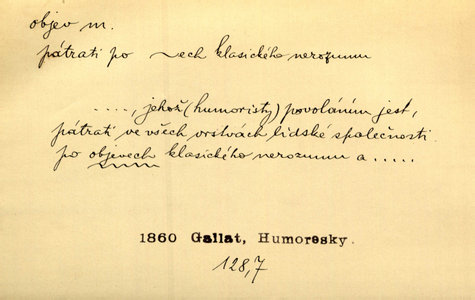 objev m.
pátrati po ~ech klasického nerozumu
...., jehož (humoristy) povoláním jest,
pátrati ve všech vrstvách lidské společnosti
po objevech klasického nerozumu a .....
1860 Gallat, Humoresky.
128,7